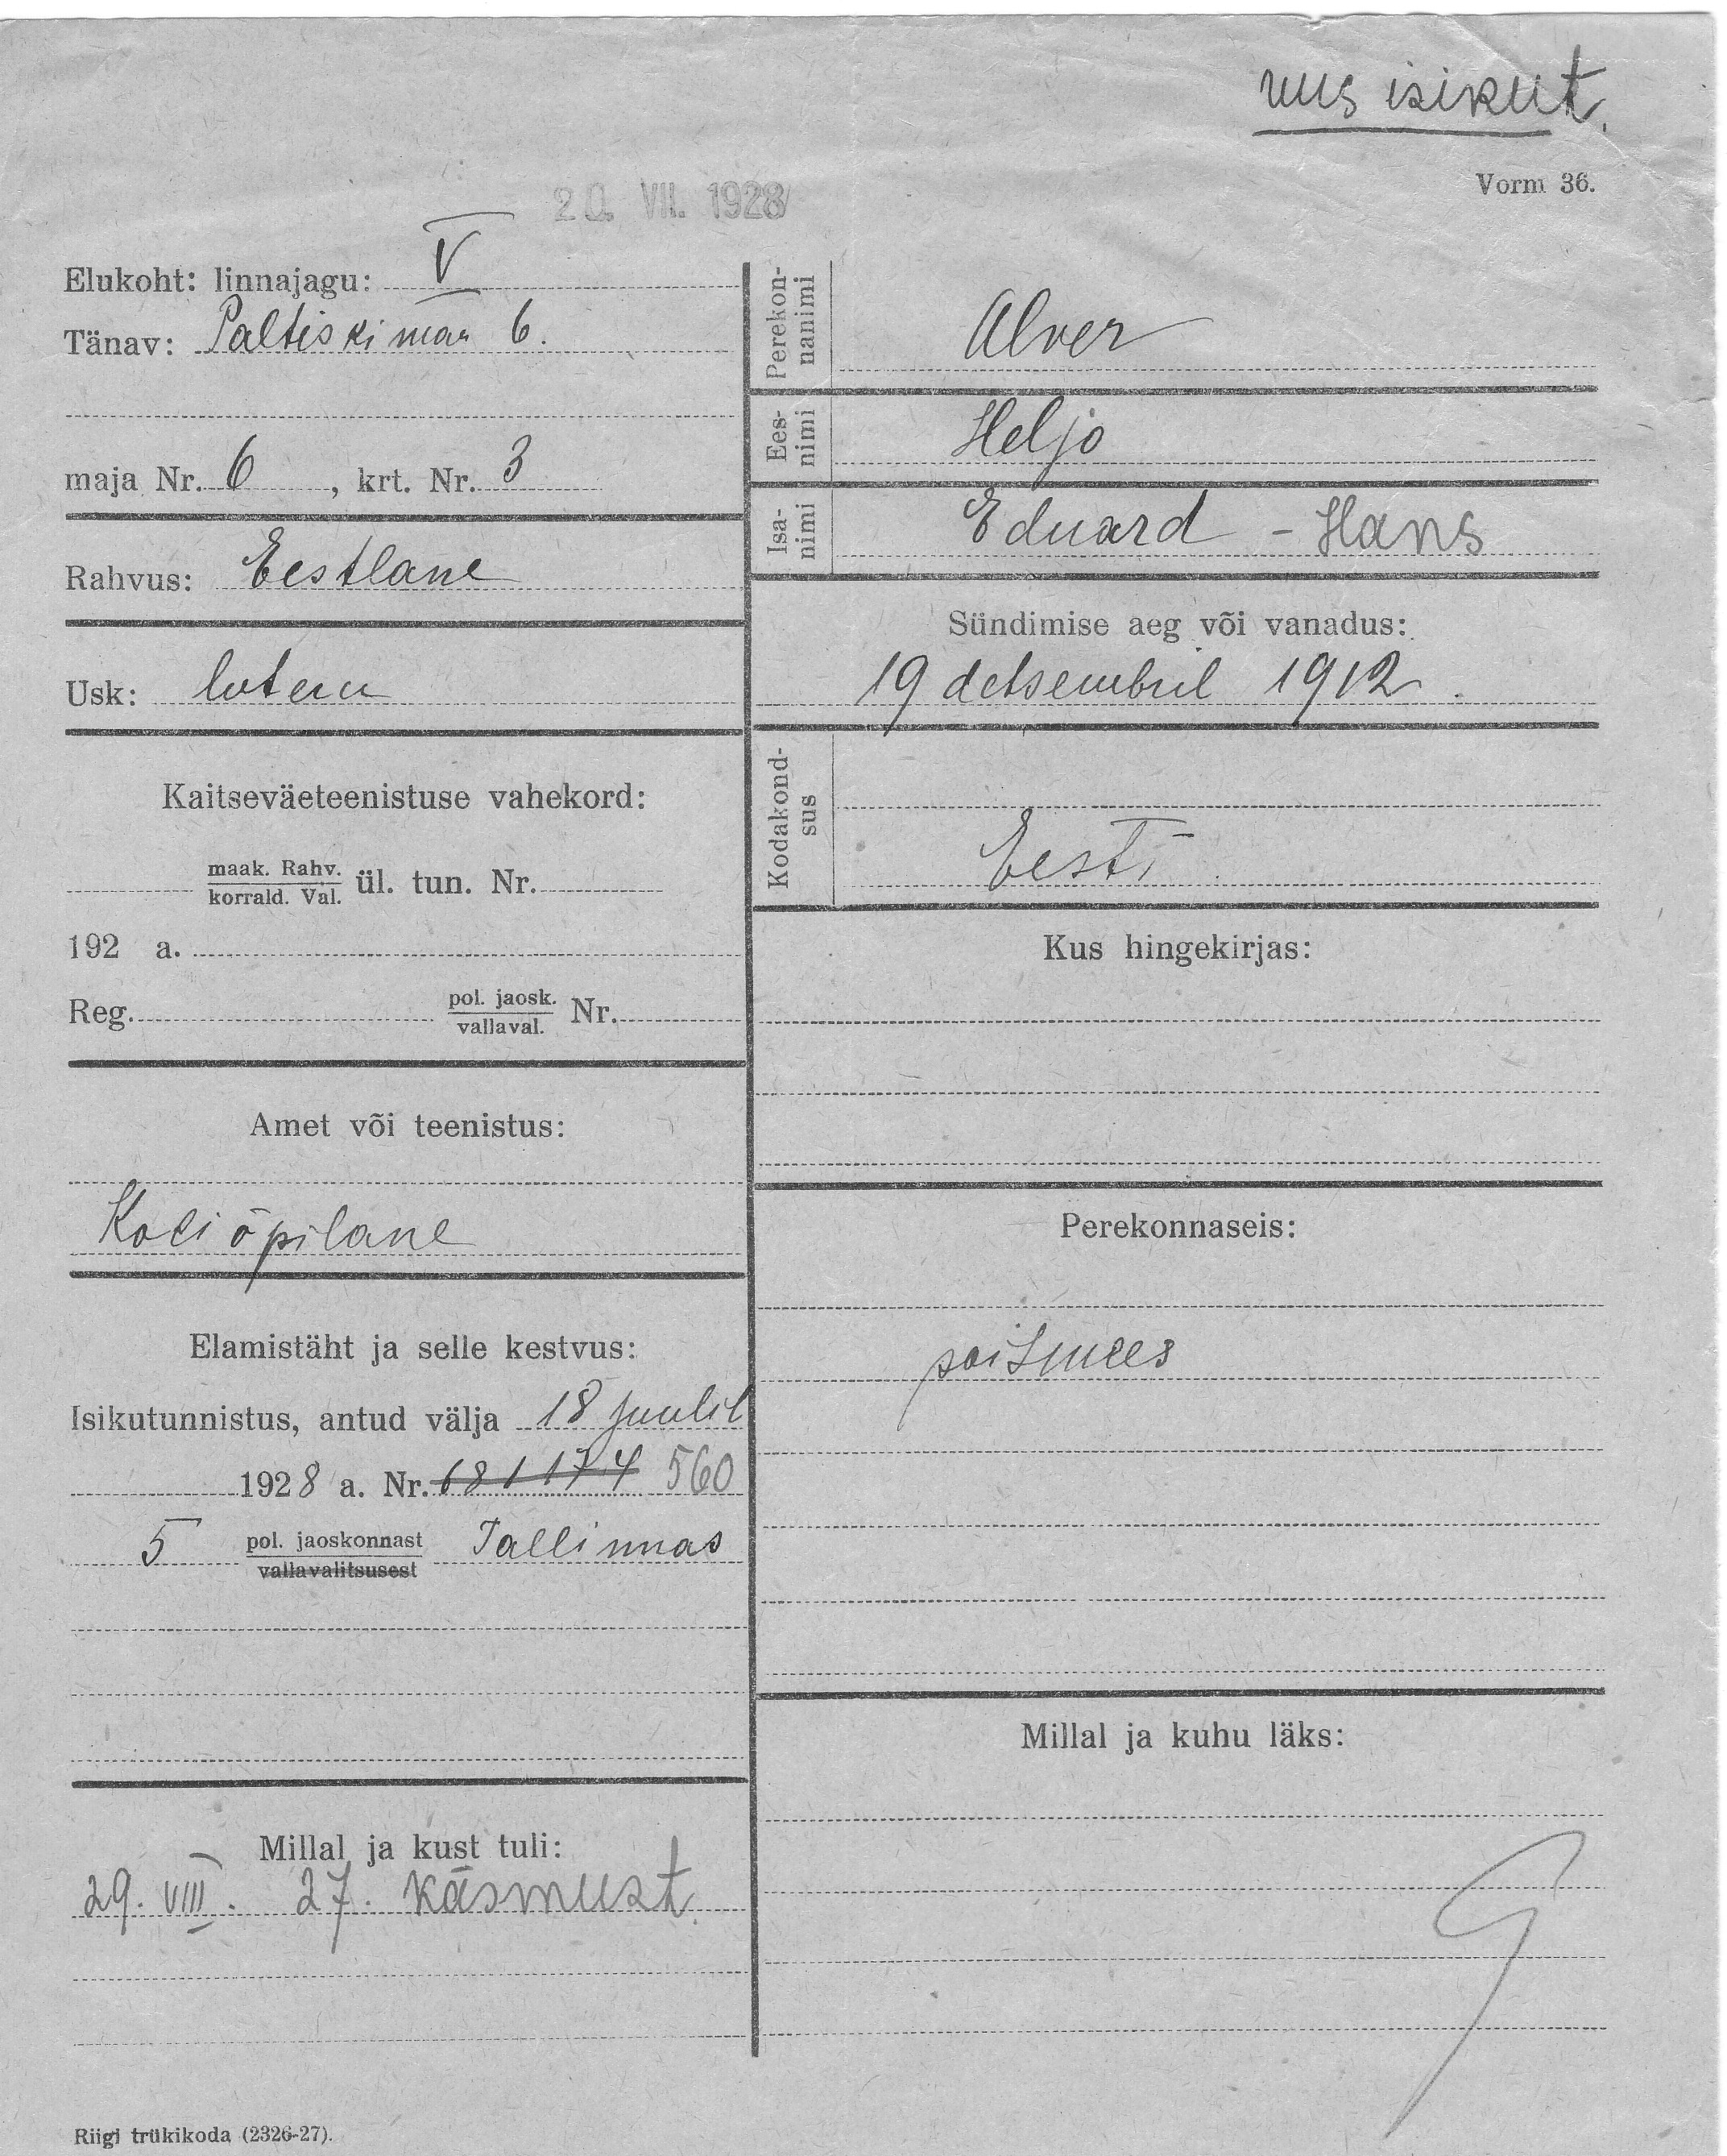 uus isikut.
Vorm 36.
20. VII. 1928
Elukoht: linnajagu: V
Tänav: Paltiski man 6.
maja Nr. 6, krt. Nr. 3
Rahvus: Eestlane
Usk: luteru
Kaitseväeteenistuse vahekord:
maak. Rahv.
korrald. Val. ül. tun. Nr.
192 a.
Reg. pol. jaosk.
vallaval. Nr.
Amet või teenistus:
Kooliõpilane
Elamistäht ja selle kestvus:
Isikutunnistus, antud välja 18 juulil
1928 a. Nr. 681174 560
5 pol. jaoskonnast Tallinnas
vallavalitsusest
Millal ja kust tuli:
29. VIII. 27. Käsmust.
Riigi trükikoda (2326-27).
Perekonnanimi
Alver
Eesnimi
Heljo
Isanimi
Eduard - Hans
Sündimise aeg või vanadus:
19 detsembril 1912.
Kodakondsus
Eesti
Kus hingekirjas:
Perekonnaseis:
poismees
Millal ja kuhu läks: